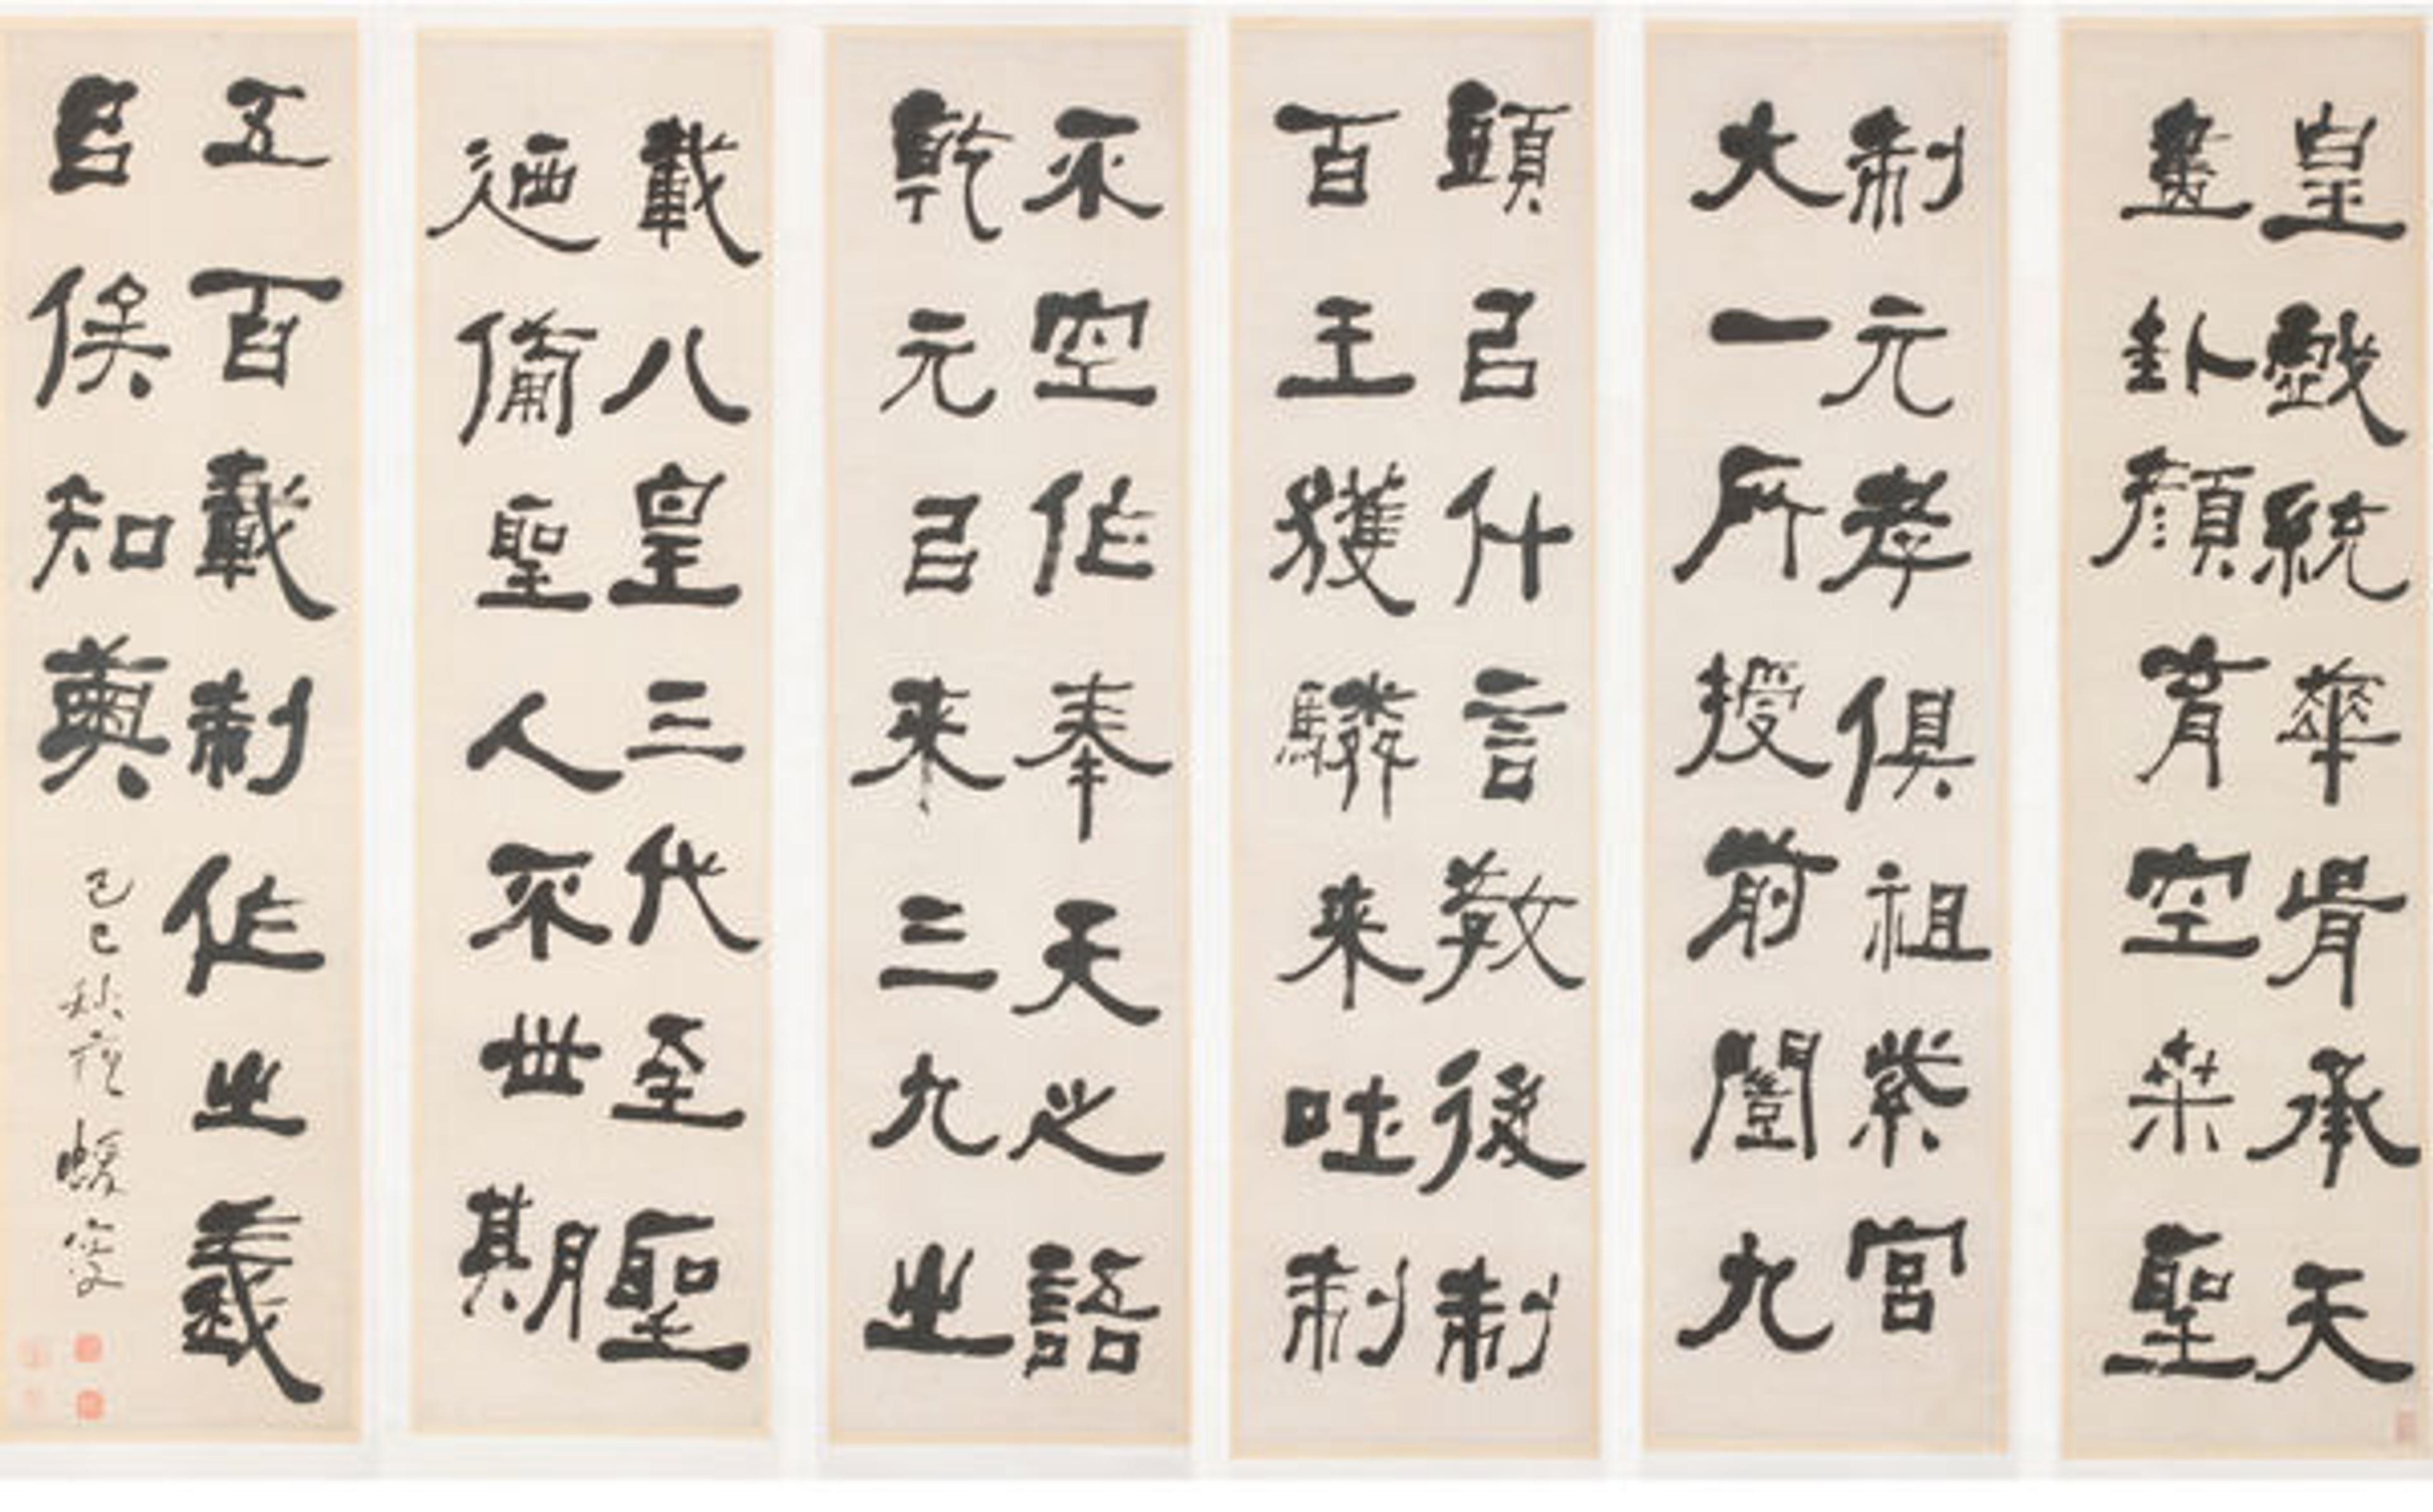 皇戲統華胥承天
畫卦顏育空桑聖
制元孝俱祖紫宮
大一所授前闓九
頭㠯什言教後制
百王獲驎來吐制
不空作奉天之語
乾元㠯來三九之
載八皇三代至聖
迺備聖人不世期
五百載制作之義
㠯俟知奧
己巳秋 蝯叟